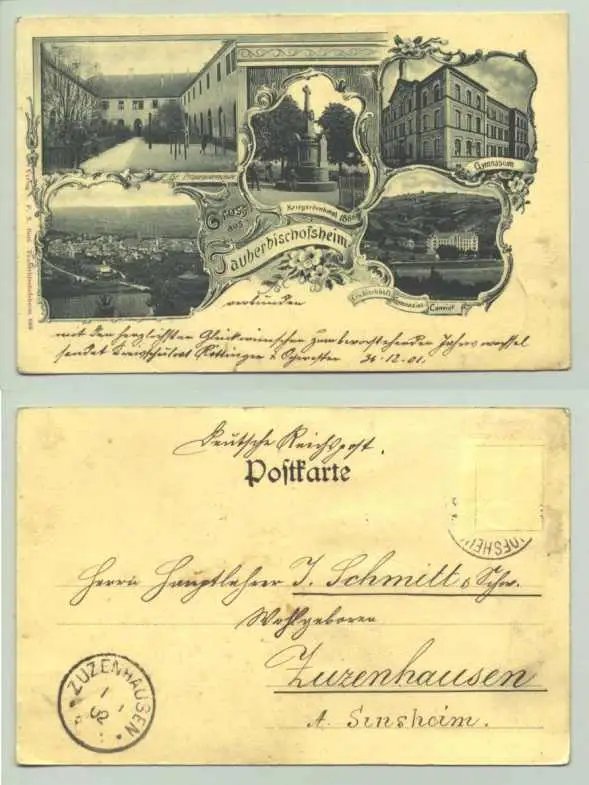 Gr. Präparandenschule
Kriegerdenkmal 1866
Gymnasium
Gruss
aus
Tauberbischofsheim
Erzbischöfl. Gymnasial-
Convict
verbunden
mit den herzlichsten Glückwünschen zum bevorstehenden Jahreswechsel
sendet Kreisschulrat Röttinger u. Schwester 31.12.01.
Deutsche Reichspost.
Postkarte
OFSHEIM
Herrn Hauptlehrer J. Schmitt u. Schw.
Wohlgeboren
Zuzenhausen
A. Sinsheim.
ZUZENHAUSEN